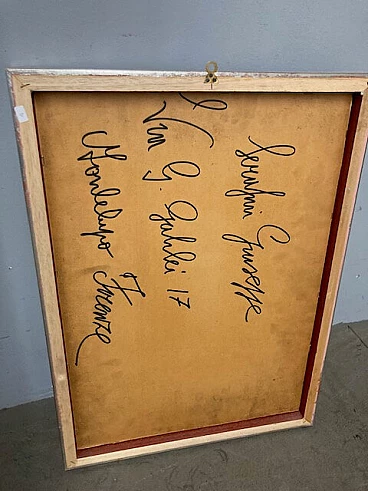 Serafini Giuseppe
Via G. Galilei 17
Montelupo Firenze